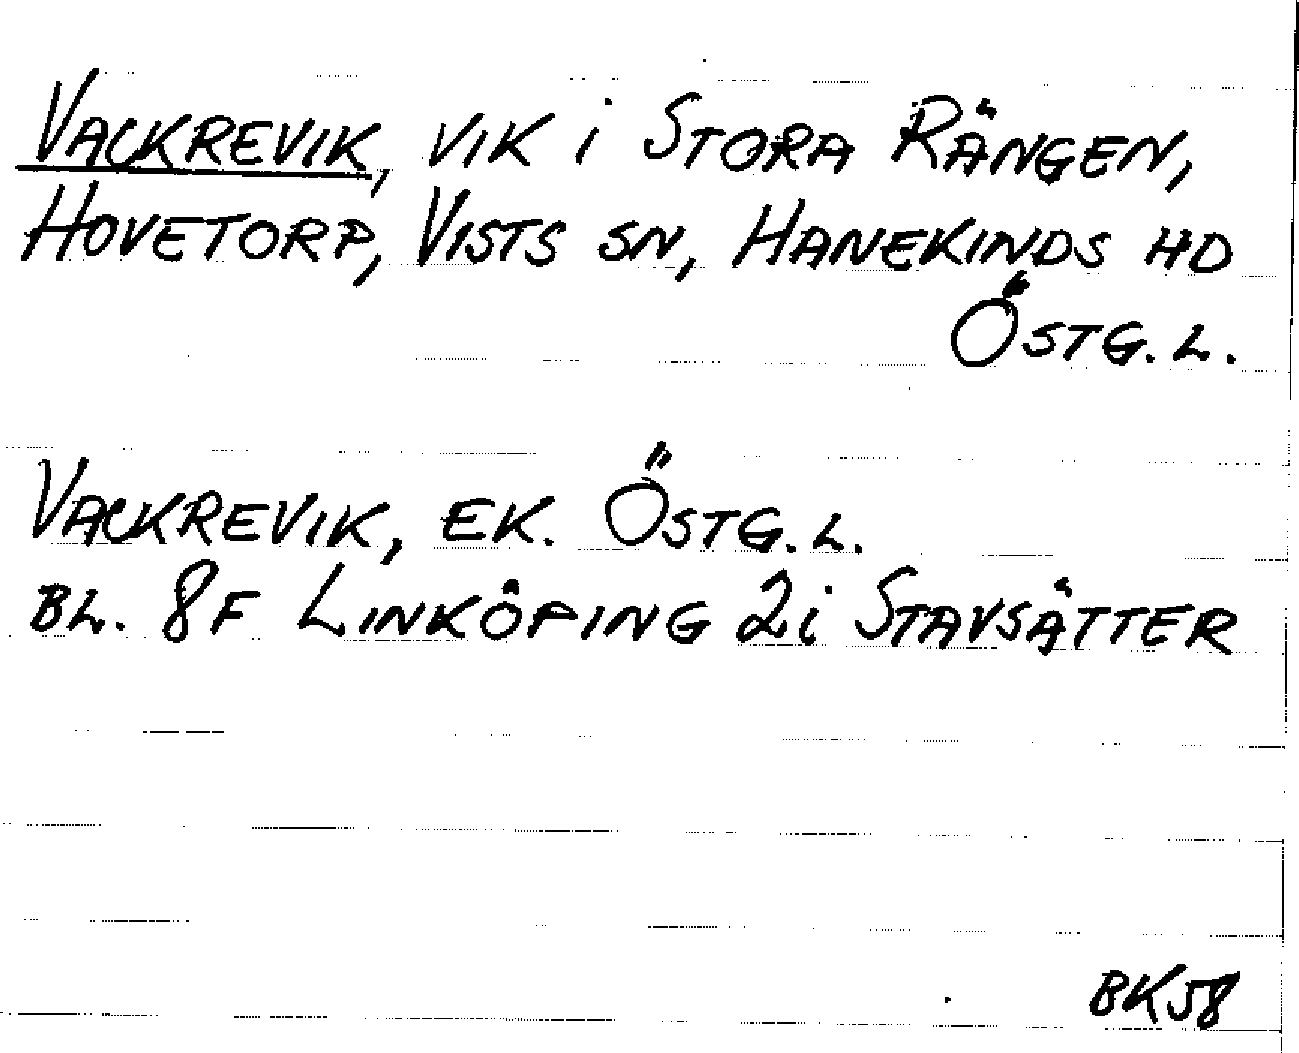 VACKREVIK, VIK i STORA RÄNGEN,
HOVETORP, VISTS SN, HANEKINDS HD
ÖSTG. L.
VACKREVIK, EK. ÖSTG. L.
BL. 8F LINKÖPING 2i STAVSÄTTER
BK58